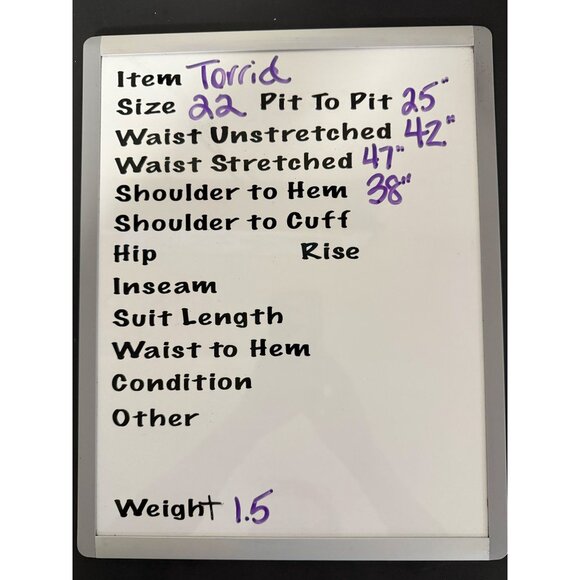 Item Torrid
Size 22 Pit To Pit 25"
Waist Unstretched 42"
Waist Stretched 47"
Shoulder to Hem 38"
Shoulder to Cuff
Hip Rise
Inseam
Suit Length
Waist to Hem
Condition
Other
Weight 1.5